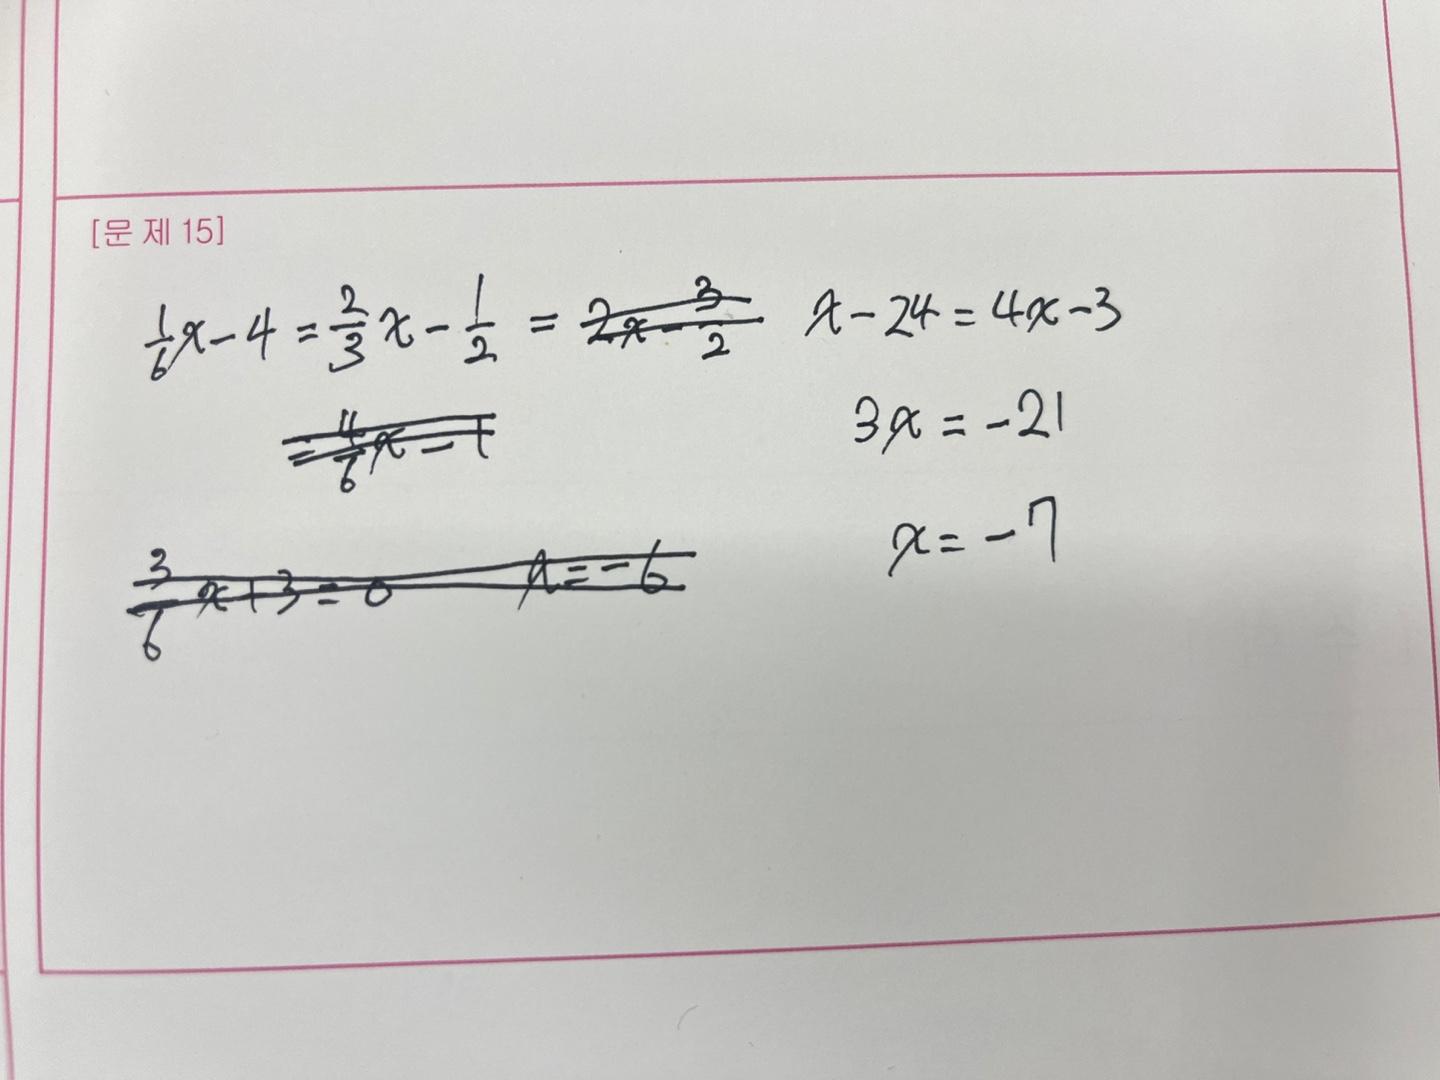 [문 제 15]
1/6 x - 4 = 2/3 x - 1/2 = 2x - 3/2 x - 24 = 4x - 3
= 4/6 x - 1 3x = -21
3/6 x + 3 = 0 x = -6 x = -7